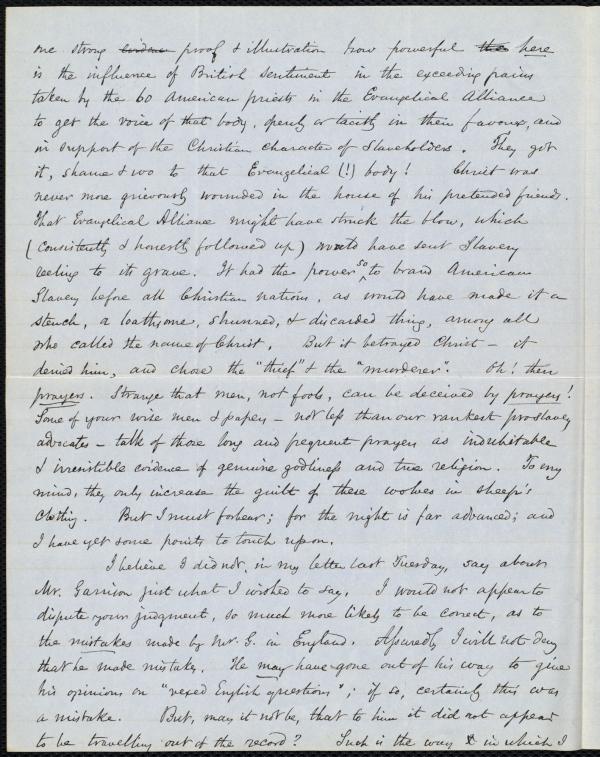 one strong evidence proof & illustration how powerful the here
is the influence of British sentiment in the exceeding pains
taken by the 60 American priests in the Evangelical Alliance
to get the voice of that body, openly or tacitly in their favour, and
in support of the Christian character of Slaveholders. They got
it, shame & wo to that Evangelical (!) body! Christ was
never more grievously wounded in the house of his pretended friends.
That Evangelical Alliance might have struck the blow, which
(consistently & honestly followed up) would have sent Slavery
reeling to its grave. It had the power so to brand American
Slavery before all Christian nations, as would have made it a
stench, a loathsome, shunned, & discarded thing, among all
who called the name of Christ. But it betrayed Christ - it
denied him, and chose the "thief" & the "murderer". Oh! their
prayers. Strange that men, not fools, can be deceived by prayers!
Some of your wise men & papers - not less than our rankest proslavery
advocates - talk of those long and frequent prayers as indubitable
& irresistible evidence of genuine godliness and true religion. To my
mind, they only increase the guilt of these wolves in sheep's
clothing. But I must forbear; for the night is far advanced; and
I have yet some points to touch upon.
I believe I did not, in my letter last Tuesday, say about
Mr. Garrison just what I wished to say. I would not appear to
dispute your judgment, so much more likely to be correct, as to
the mistakes made by Mr. G. in England. Assuredly I will not deny
that he made mistakes. He may have gone out of his way to give
his opinions on "vexed English questions"; if so, certainly this was
a mistake. But, may it not be, that to him it did not appear
to be travelling out of the record? Such is the way in which I